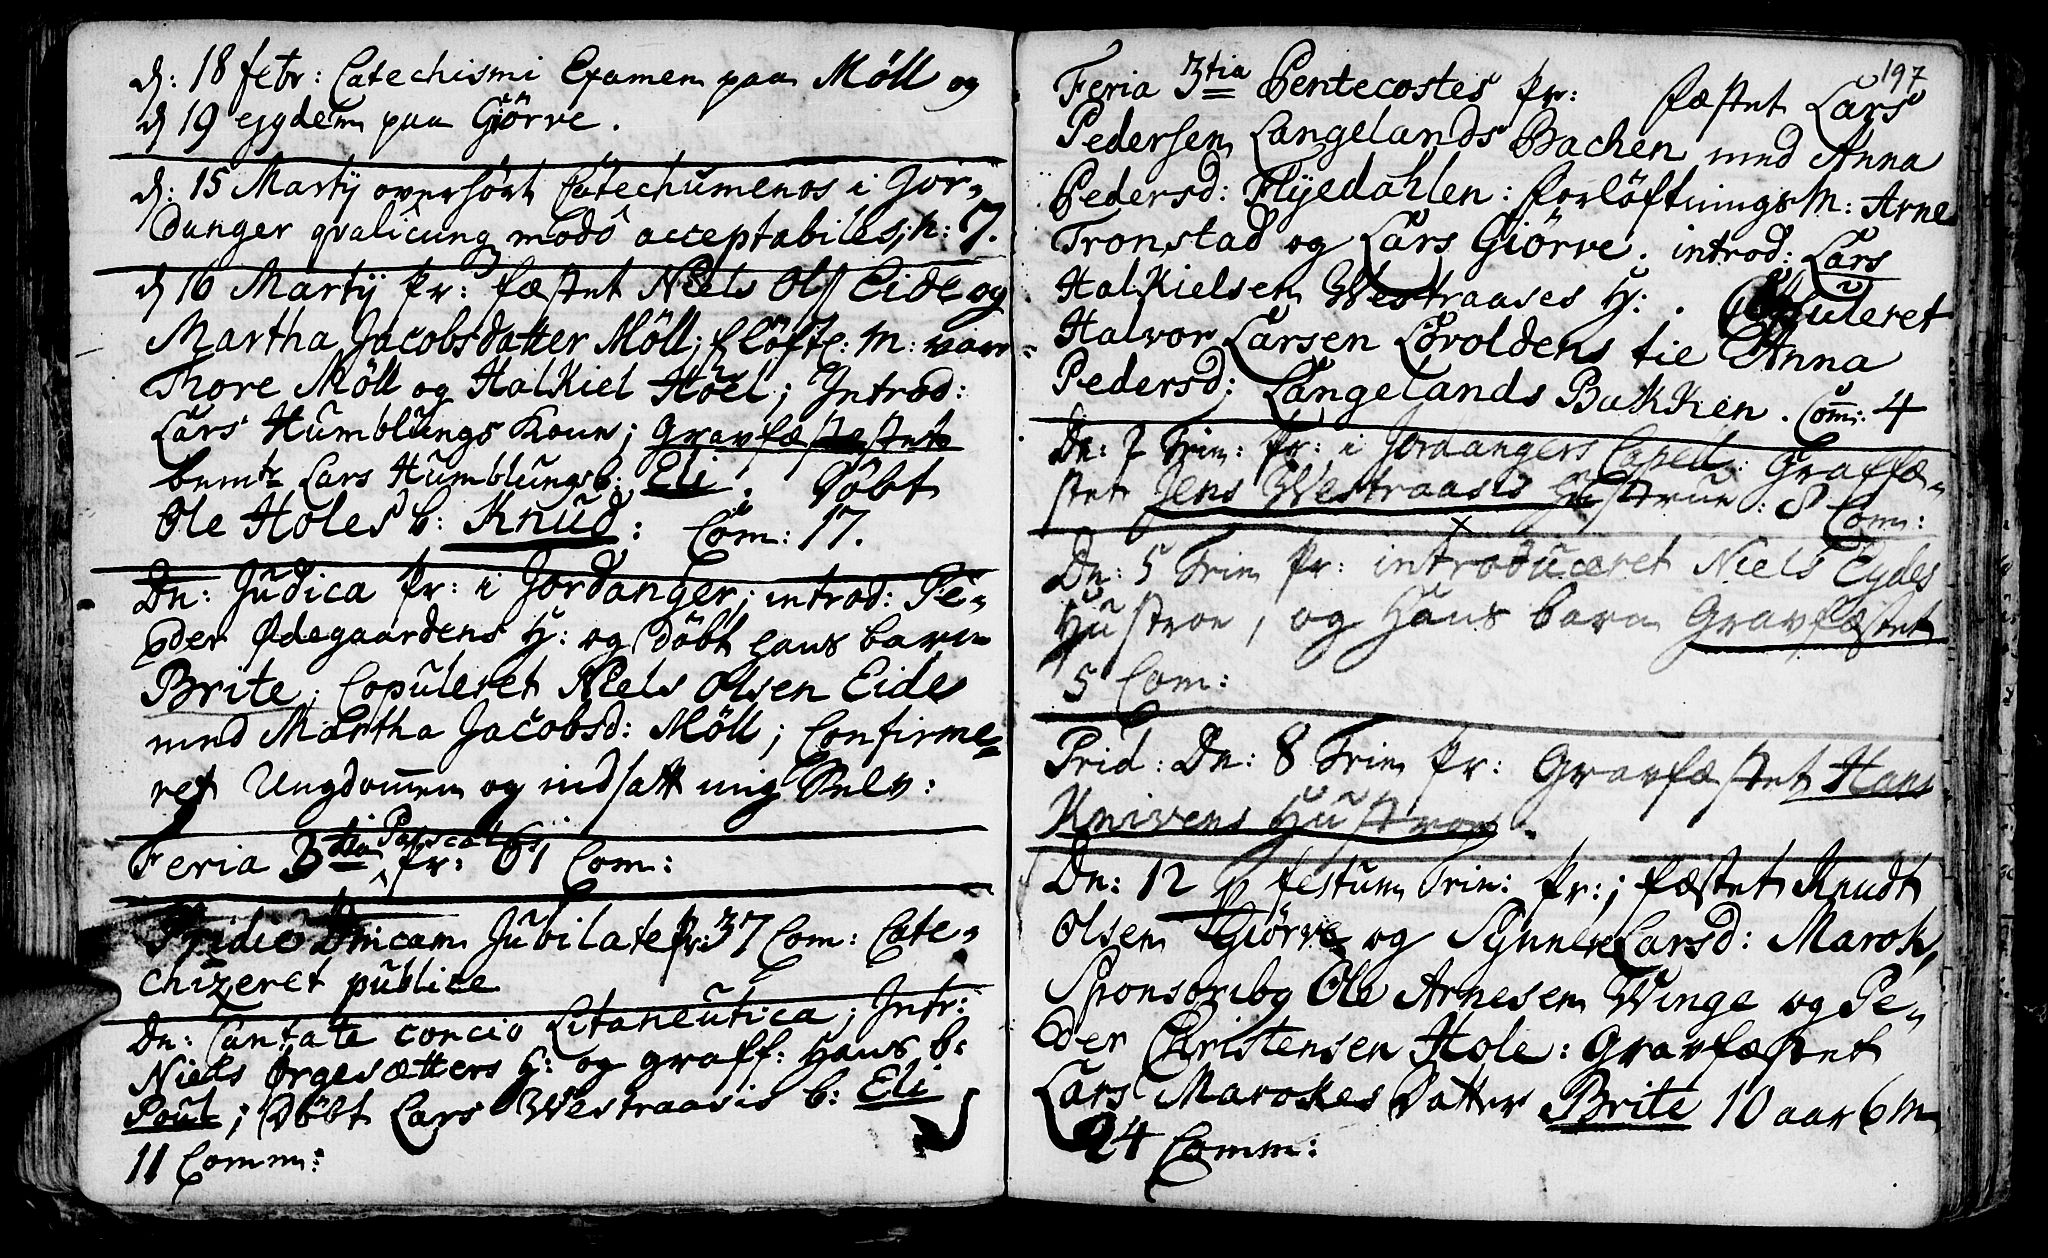 d: 18 febr: Catechismi Examen paa Möll og
d 19 ejgdem paa Giörve.
d: 15 Martij overhört Catechumenos i Jor-
danger qvalicunq modo acceptabiles; n: 7.
d 16 Martij Pr: fæstet Niels Ols Eide og
Martha Jacobsdatter Möll; flöftn: M: var
Thore Möll og Halkiel Höel; Introd:
Lars Humblungs Kone; gravfæstet
bemte Lars Humblungs b: Eli. Döbt
Ole Holes b: Knud: Com: 17.
Dn: Judica Pr: i Jordanger; introd: Pe-
der Ødegaardens H: og döbt hans barn
Brite; Copuleret Niels Olsen Eide
med Martha Jacobsd: Möll; Confirme-
ret Ungdommen og indsatt mig Selv:
Feria 3tia Pascatis Pr: 61 Com:
Pridie Dnicam Jubilate Pr: 37 Com: Cate-
chizeret publice
Dn: Cantate concio Litaneutica; Intr:
Niels Ørgesætters H: og graff: Hans b:
Poul; Döbt Lars Westraasis b: Eli
11 Comm:
197
Feria 3tia Pentecostes Pr: fæstet Lars
Pedersen Langelands Bachen med Anna
Pedersd: Flyedahlen: forlöftnings M: Arne
Tronstad og Lars Giörve. introd: Lars
Halkielsen Westraases H:. Copuleret
Halvor Larsen Lövoldens tie Anna
Pedersd: Langelands Bakken. Com: 4
Dn: 2 Trin: Pr: i Jordangers Capell: Graffæ-
stet Jens Westraasis Hustrue: 8 Com:
Dn: 5 Trin Pr: introduceret Niels Eydes
Hustroe, og Hans barn Gravfæstet
5 Com:
Prid: Dn: 8 Trin Pr: Gravfæstet Hans
Knivens Hustroe.
Dn: 12 p festum Trin: Pr:; fæstet Knudt
Olsen Giörve og Synneve Larsd: Marok,
Sponsoribg Ole Arnesen Winge og Pe-
der Christensen Hole: Gravfæstet
Lars Marokes Datter Brite 10 aar 6 m
24 Comm: